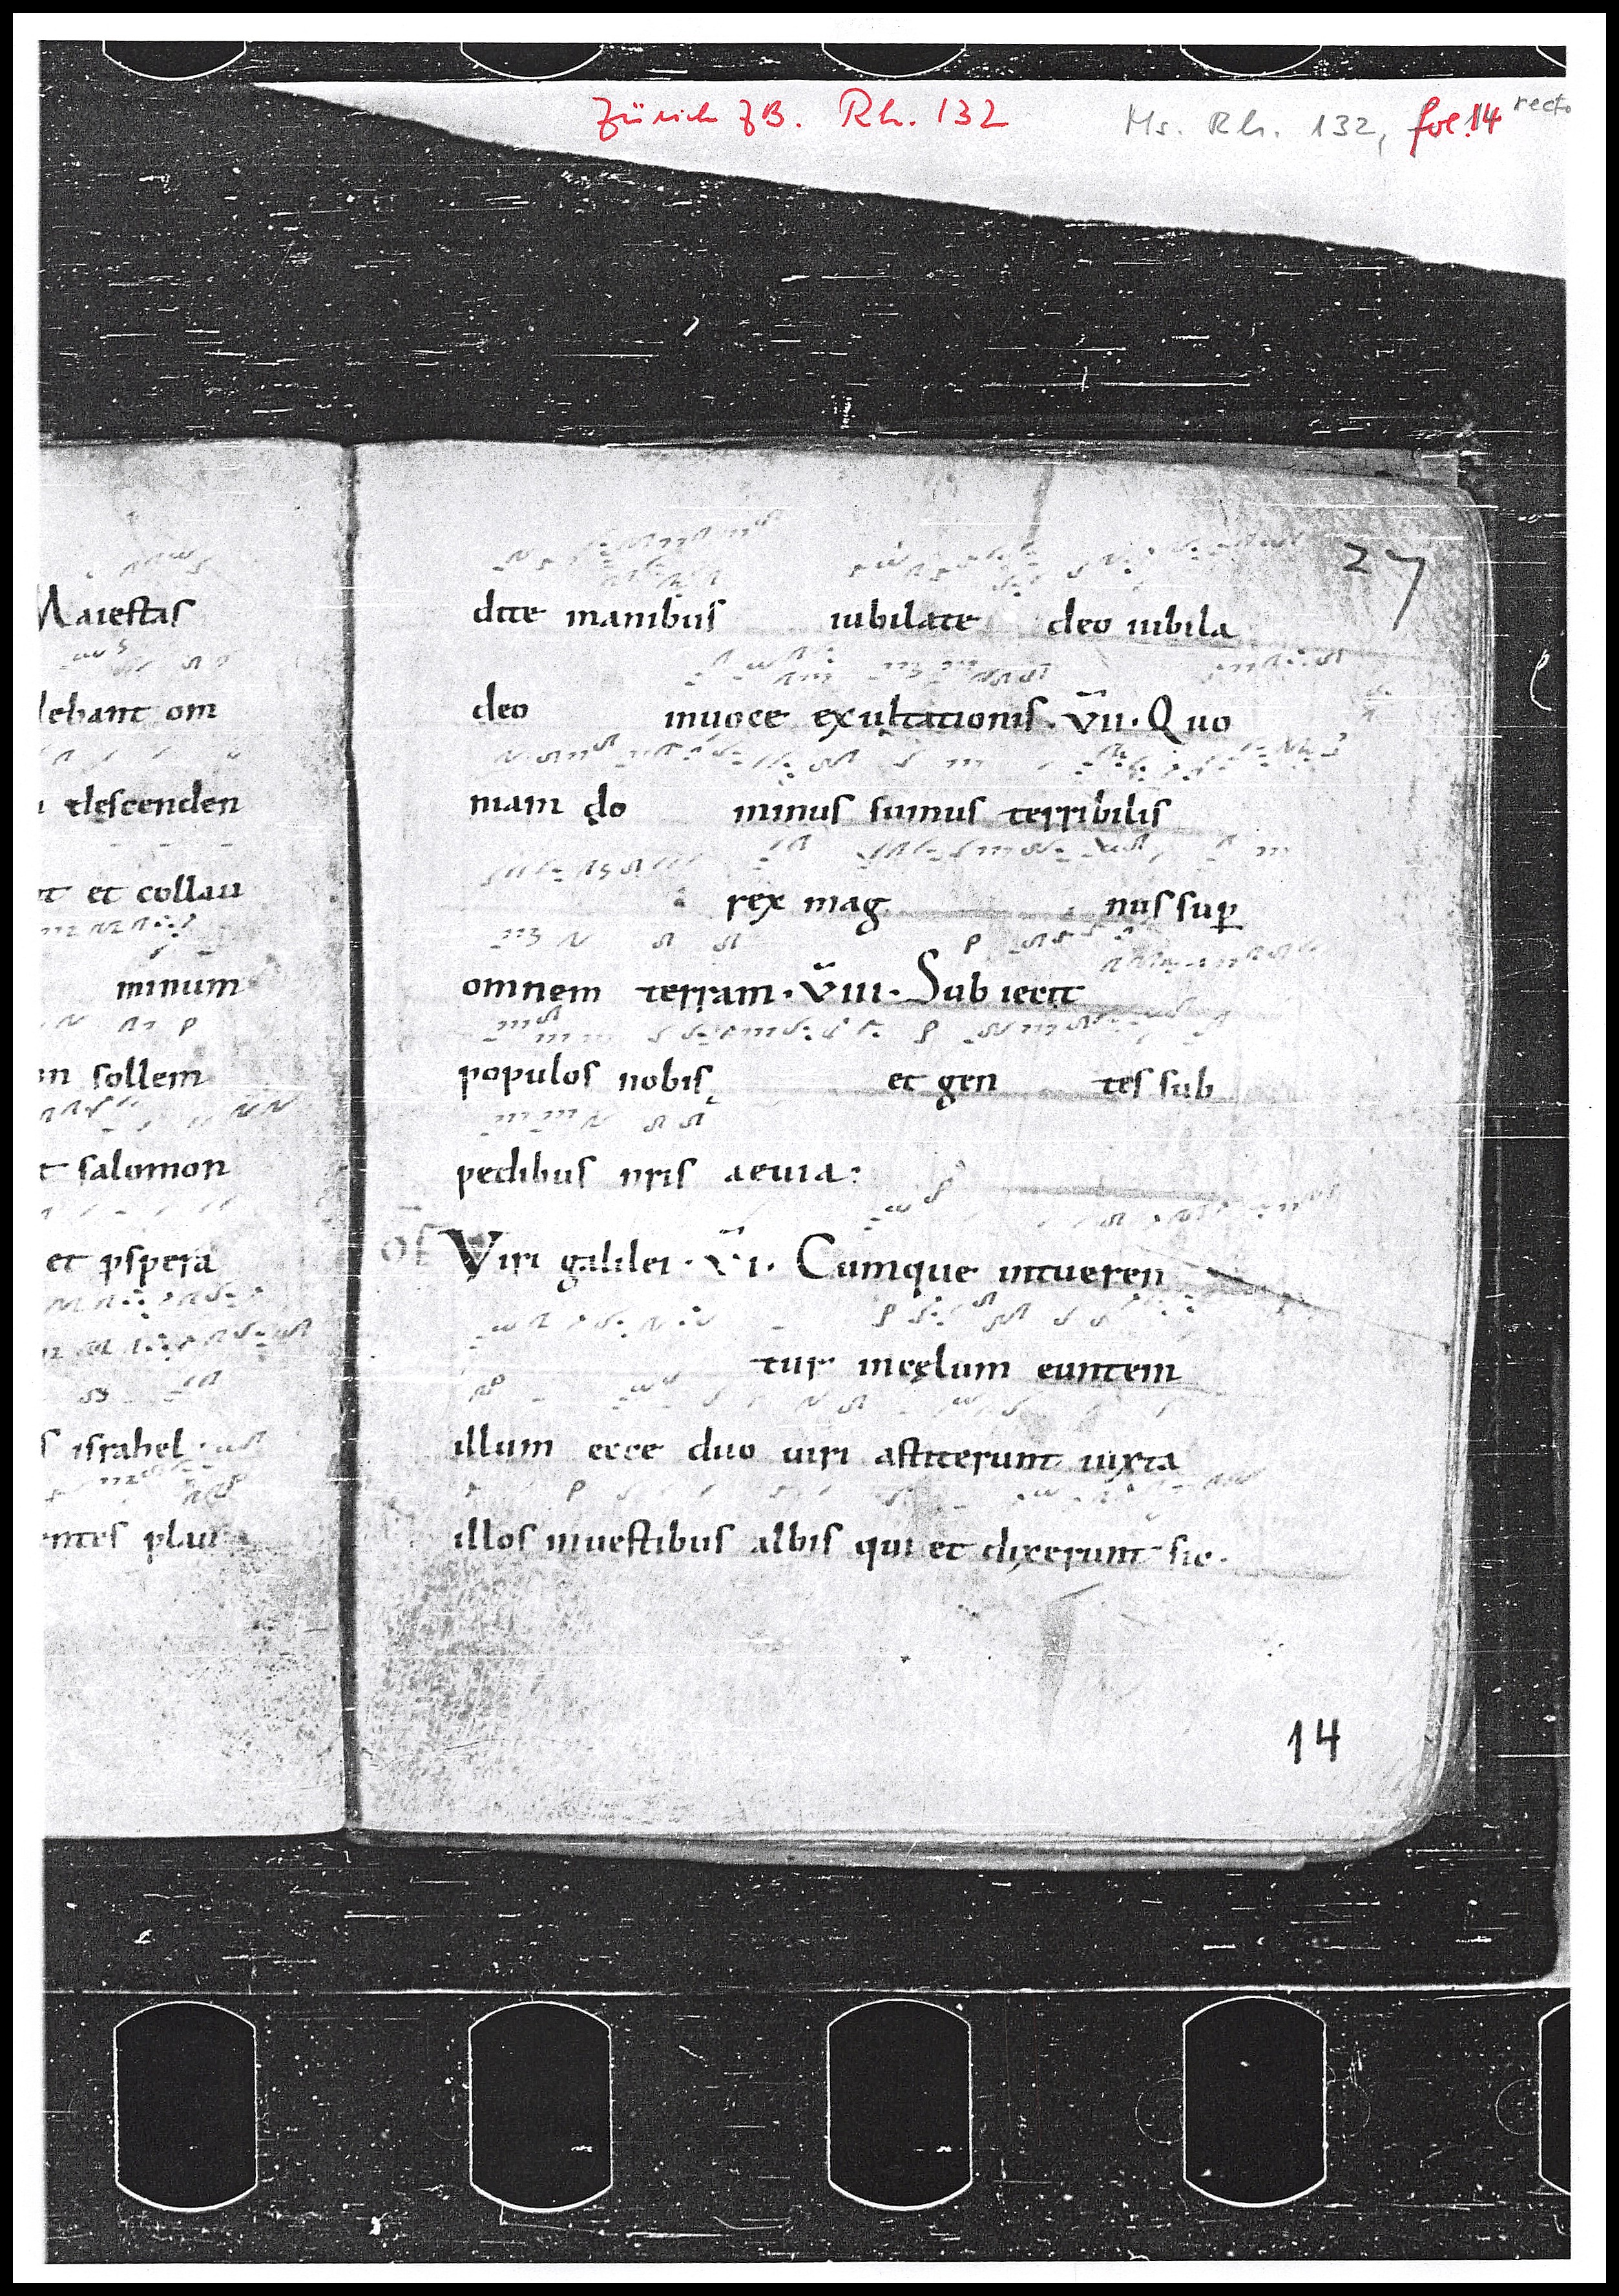 Zürich ZB. Rh. 132
Ms. Rh. 132, fol. 14 recto
27
Maiestas
lebant om
descenden
et collau
minum
sollem
salomon
et ꝑspera
israhel
entes plau
dite manibus iubilate deo iubila
deo inuoce exultationis · Ṽii · Quo
niam do minus sumus terribilis
rex mag nus suꝑ
omnem terram · Ṽiii · Subiecit
populos nobis et gen tes sub
pedibus nr̄is aeuia :
Of Viri galilei · Ṽi · Cumque intueren
tur incęlum euntem
illum ecce duo uiri astiterunt iuxta
illos inuestibus albis qui et dixerunt sic .
14